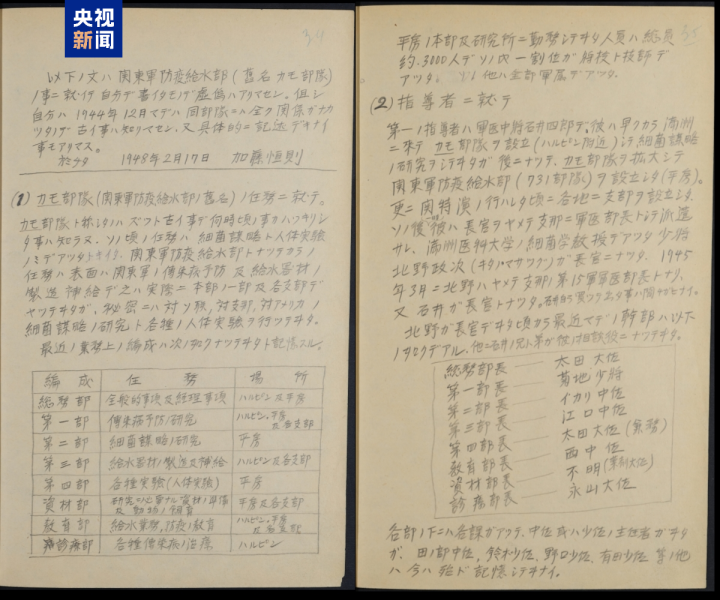 央视新闻
34
以下ノ文ハ関東軍防疫給水部(舊名カモ部隊)
ノ事ニ就イテ自分デ書イタモノデ虚偽ハアリマセン。但シ
自分ハ1944年12月マデハ同部隊ニハ全ク関係ガナカ
ツタノデ古イ事ハ知リマセン、又具体的ニ記述デキナイ
事モアリマス。
1948年2月17日 加藤恒則
(1) カモ部隊(関東軍防疫給水部ノ舊名)ノ任務ニ就テ。
カモ部隊ト称シタノハズツト古イ事デ何時頃ノ事カハツキリシ
タ事ハ知ラヌ。ソノ頃ノ任務ハ細菌謀略ト人体実験
ノミデアツタ 関東軍防疫給水部トナツテカラノ
任務ハ表面ハ関東軍ノ傳染病予防及給水器材ノ
製造補給デ之ハ実際ニ本部ノ一部及各支部デ
ヤツテヰタガ、秘密ニハ対ソ聯、対支那、対アメリカノ
細菌謀略ノ研究ト各種ノ人体実験ヲ行ツテヰタ。
最近ノ業務上ノ編成ハ次ノ如クナツテヰタト記憶スル。
編成 任務 場所
総務部 全般的事項及経理事項 ハルビン及平房
第一部 傳染病予防ノ研究 ハルビン、平房及各支部
第二部 細菌謀略ノ研究 平房
第三部 給水器材ノ製造及補給 ハルビン及各支部
第四部 各種実験(人体実験) 平房
資材部 研究ニ必要ナル資材ノ準備及動物ノ飼育 平房及各支部
教育部 給水業務、防疫ノ教育 ハルビン、平房及各支部
診療部 各種傳染病ノ治療 ハルビン
35
平房ノ本部及研究所ニ勤務シテヰタ人員ハ総員
約3000人デソノ内一割位ガ将校ト技師デ
アツタ。 他ハ全部軍属デアツタ。
(2) 指導者ニ就テ
第一ノ指導者ハ軍医中将石井四郎デ、彼ハ早クカラ満洲
ニ来テカモ部隊ヲ設立(ハルビン附近)シテ細菌謀略
ノ研究ヲシテヰタガ後ニナツテ、カモ部隊ヲ拡大シテ
関東軍防疫給水部(731部隊)ヲ設立シタ(平房)。
更ニ関特演ノ行ハレタ頃ニ各地ニ支部ヲ設立シタ。
ソノ後彼ハ長官ヲヤメテ支那ニ軍医部長トシテ派遣
サレ、満洲医科大学ノ細菌学教授デアツタ少将
北野政次(キタノマサツグ)ガ長官ニナツタ。1945
年3月ニ北野ハヤメテ支那ノ第15軍軍医部長トナリ、
又石井ガ長官トナツタ。
北野ガ長官デヰタ頃カラ最近マデノ幹部ハ以下
ノ如クデアル、他ニ石井ノ兄ト弟ガ彼ノ相談役ニナツテヰタ。
総務部長 太田大佐
第一部長 菊地少将
第二部長 イカリ中佐
第三部長 江口中佐
第四部長 太田大佐(兼務)
教育部長 西中佐
資材部長 不明(薬剤大佐)
診療部長 永山大佐
各部ノ下ニハ各課ガアツテ、中佐或ハ少佐ノ主任者ガヰタ
ガ、田ノ部中佐、鈴木少佐、野口少佐、有田少佐等ノ他
ハ今ハ殆ド記憶シテヰナイ。